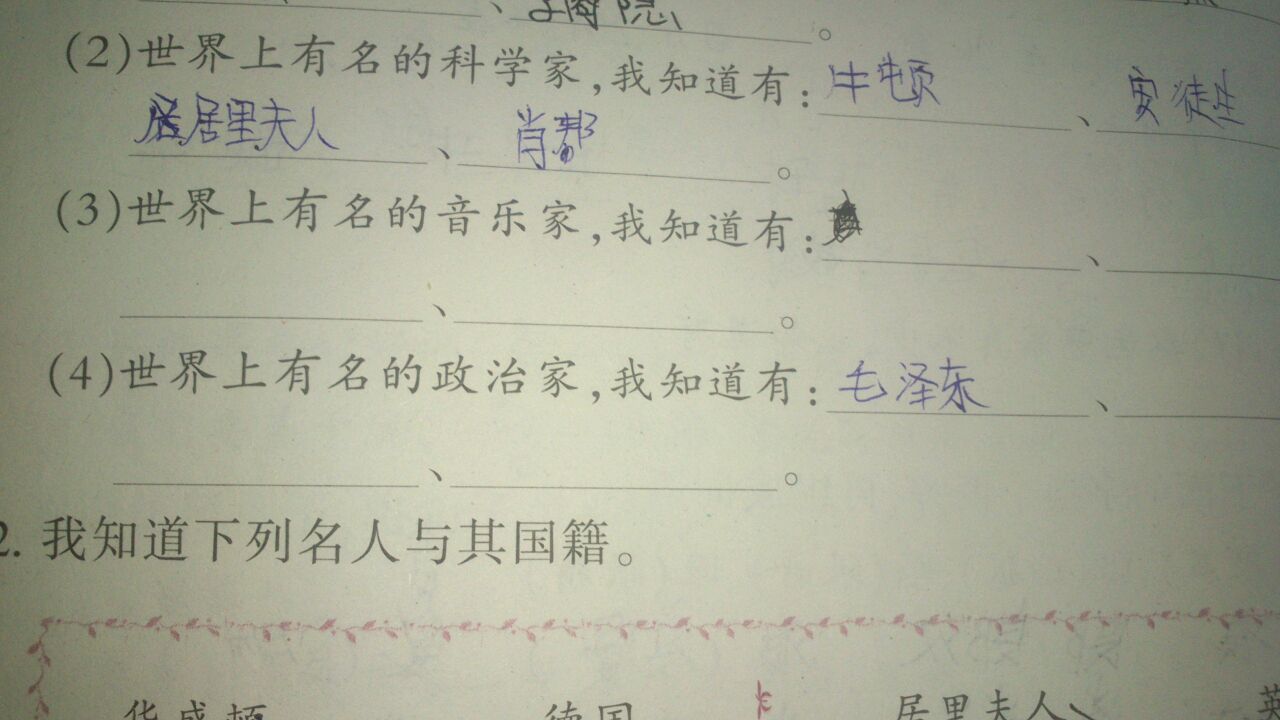 (2)世界上有名的科学家,我知道有:牛顿、安徒生
居里夫人、肖邦。
(3)世界上有名的音乐家,我知道有:、
、。
(4)世界上有名的政治家,我知道有:毛泽东、
、。
2.我知道下列名人与其国籍。
华盛顿 德国 居里夫人